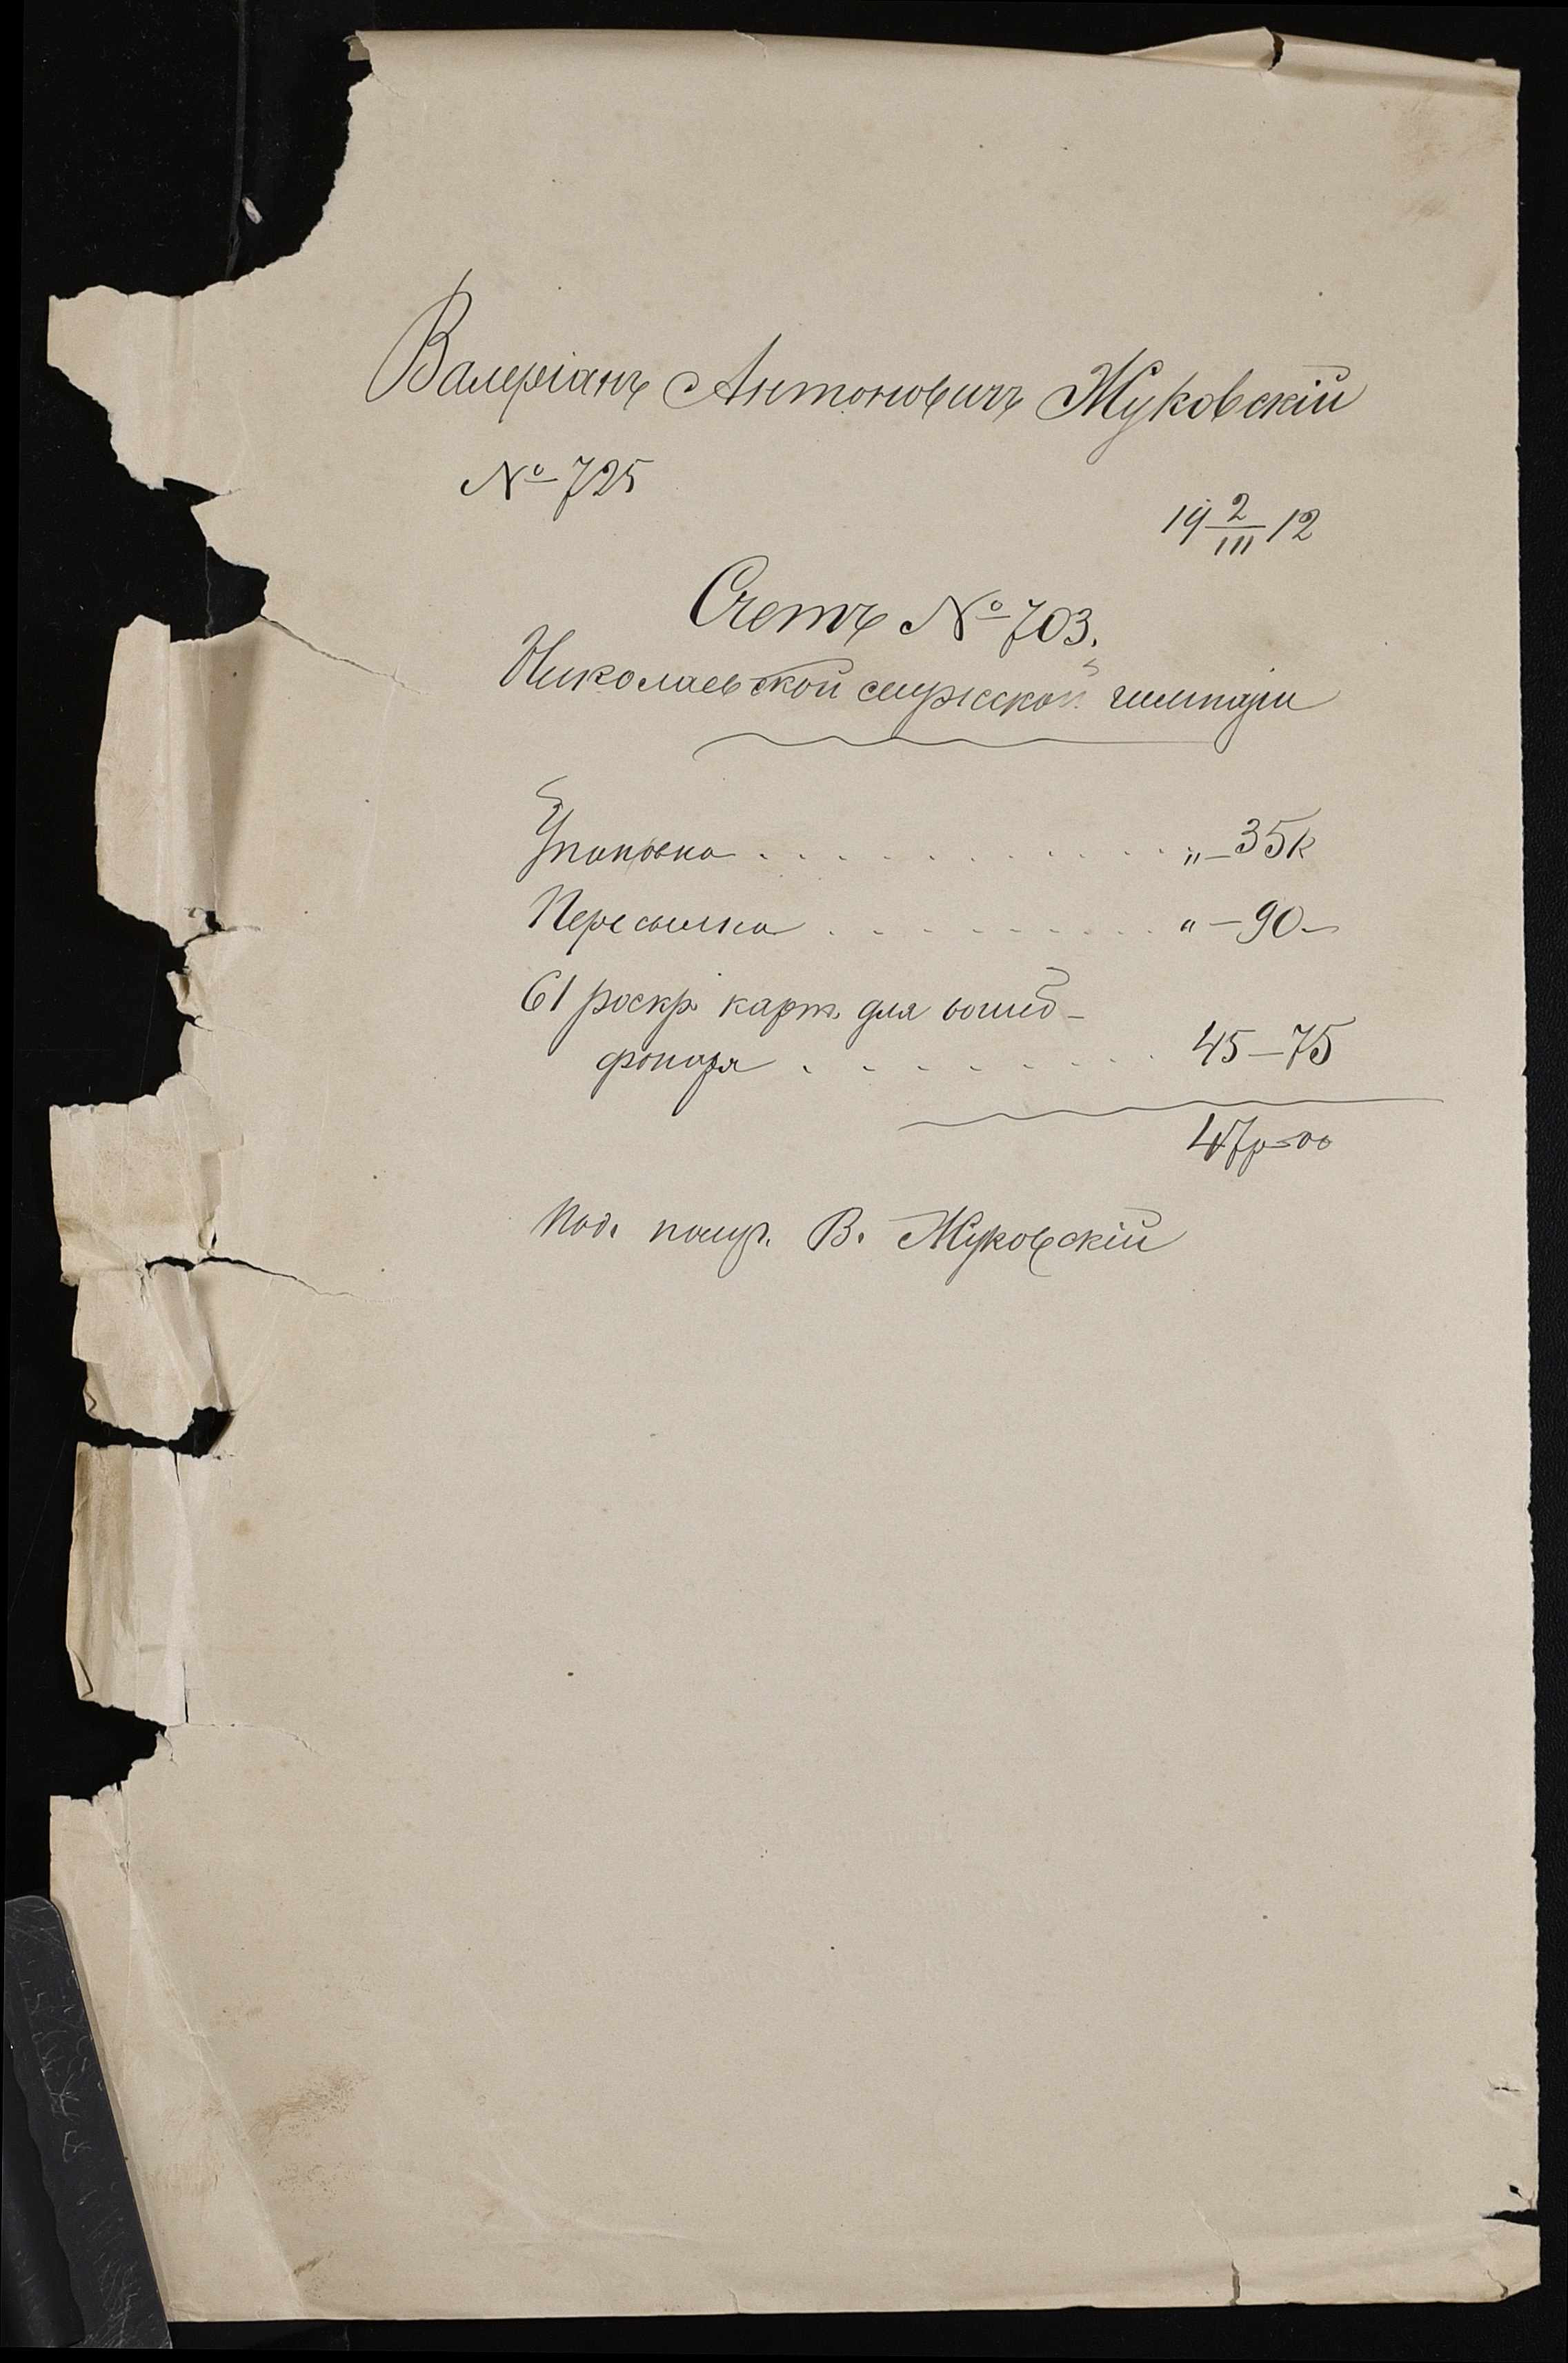 Валеріанъ Антоновичъ Жуковскій
№ 725
19 2/III 12
Счетъ № 703.
Николаевской мужской гимназіи
Упаковка . . . . . . . . . . . . „ — 35к
Пересылка . . . . . . . . . . „ — 90 —
61 раскр. карт. для волшеб-
фонаря . . . . . . . . . 45 — 75
47р = 00
Под. получ. В. Жуковскій